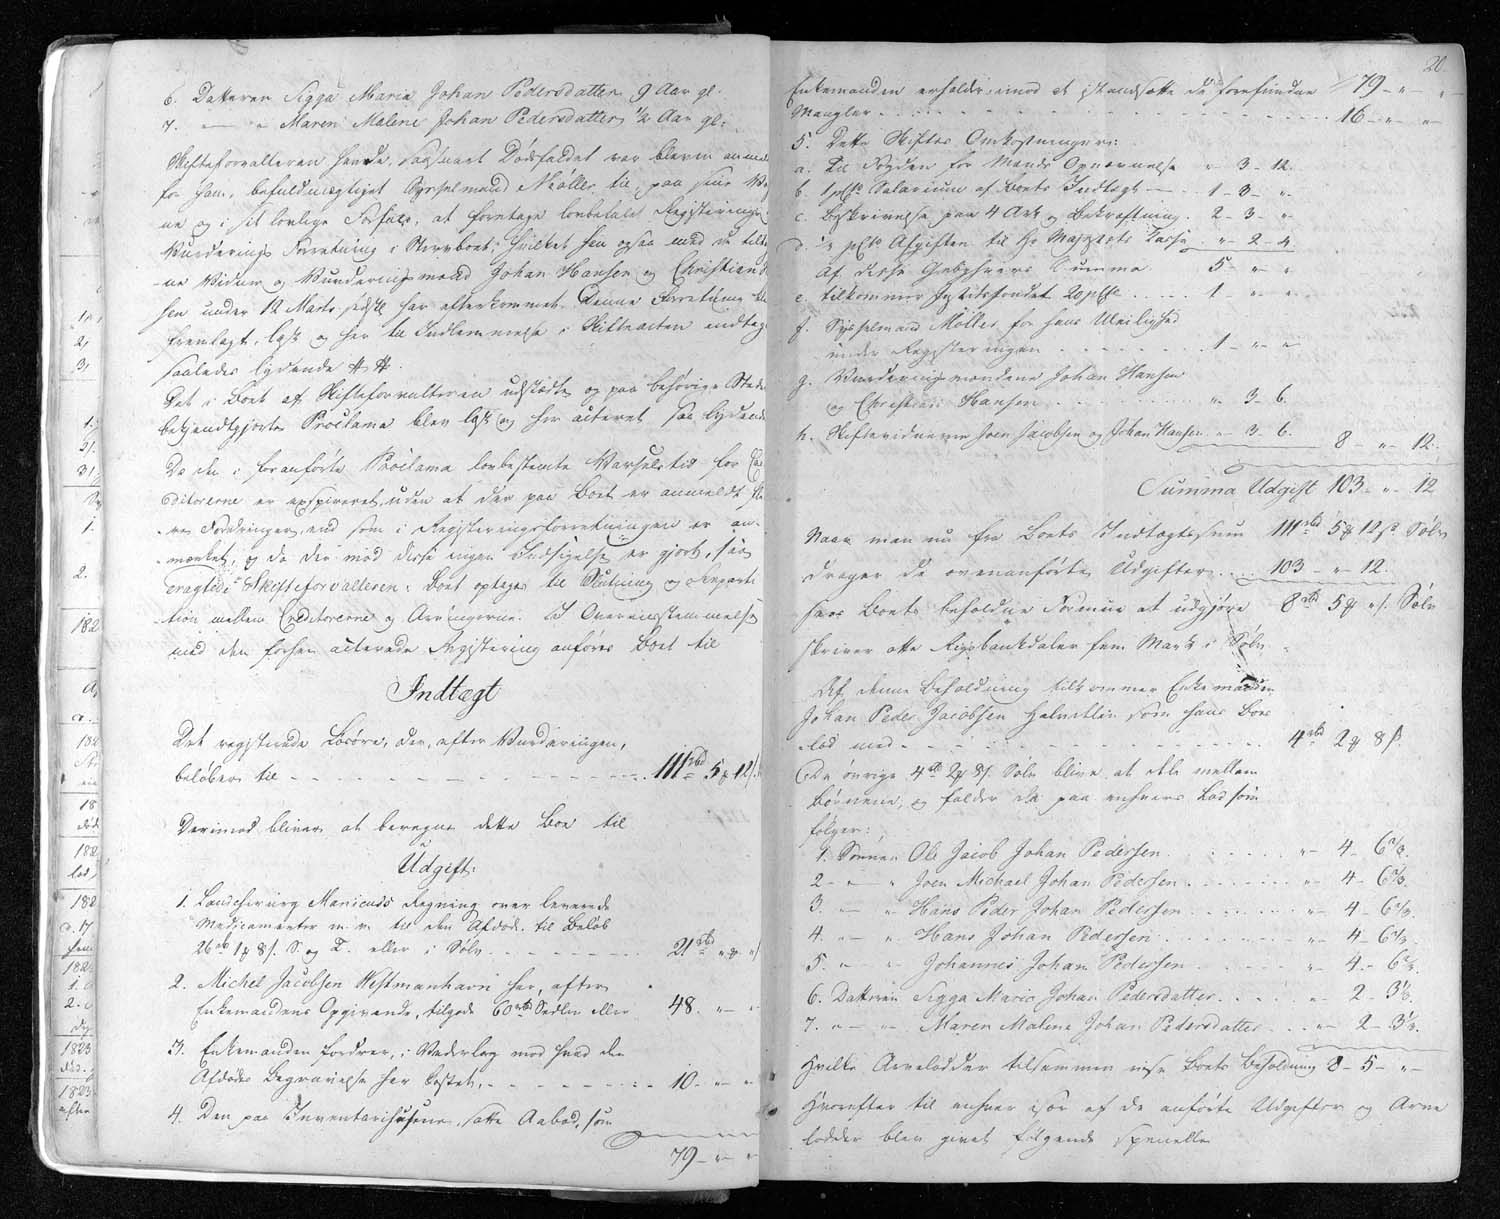 6. Datteren Sigga Maria Johan Pedersdatter 9 Aar gl.
7. — " Maren Malene Johan Pedersdatter 1/2 Aar gl:
Skifteforvalteren havde, saasnart Dødsfaldet var bleven anmel
for ham, befuldmægtiget Sysselmand Møller til, paa sine Veg
ne og i sit lovlige Forfald, at foretage lovbefalet Registerings
Vurderings Forretning i Sterboet, hvilket han ogsaa med de tilta
ne Vidner og Vurderingsmænd Johan Hansen og Christian
sen under 12 Marts sidstl. har efterkommet. Denne Forretning bl
fremlagt, læst og her til Indlemmelse i Skifteacten indtag
saaledes lydende # #.
Det i Boet af Skifteforvalteren udstædte og paa behørige Steder
bekjendtgjorte Proclama blev læst og her acteret saa lydende
Da den i foranførte Proclama lovbestemte Varselstid for Cre
ditorerne er exspireret, uden at der paa Boet er anmeldt fle
re Fordringer, end som i Registeringsforretningen er an-
mærket, og da der mod disse ingen Indsigelse er gjort, saa
eragtede Skifteforvalteren: Boet optages til Slutning og Reparti
tion mellem Creditorerne og Arvingerne. I Overeensstemmelse
med den forhen acterede Registering anføres Boet til
Indtægt
Det registerede Løsøre, der, efter Vurderingen,
beløber til - - - - - 111 rbd 5 # 12 s
Derimod bliver at beregne dette Boe til
Udgift:
1. Landchirurg Manicus's Regning over leverede
Medicamenter m. m. til den Afdøde til Beløb
26 rb 1 # 8 s. S. og T. eller i Sølv - - - 21 rbd " # " s
2. Michel Jacobsen Westmanhavn har, efter
Enkemandens Opgivende, tilgode 60 rb Sedler eller 48 " "
3. Enkemanden fordrer, i Vederlag mod hvad den
Afdødes Begravelse har kostet, - - - 10 - " "
4. Den paa Inventarihusene satte Aabod, som
79 - " - "
20.
Enkemanden erholder imod at istandsætte de forefundne 79 - " - "
Mangler - - - - 16 - " - "
5. Dette Skiftes Omkostninger:
a. Til Fogden for Mænds Opnævnelse " 3 - 12.
b. 1 pCt. Salarium af Boets Indtægt — . 1 - 3 - "
c. Beskrivelse paa 4 Ark og Bekræftning . 2 - 3 - "
d. 1/2 pCt. Afgiften til Hs Majestæts Kasse . " - 2 - 4
Af disse Gebyhrers Summa 5 - " "
e. tilkommer Justitsfondet 20 pCt. . . . . 1 - " "
f. Sysselmand Møller for hans Uleilighed
under Registeringen . . . . . 1 - " "
g. Vurderingsmændene Johan Hansen
og Christian Hansen - - - - " 3 - 6.
h. Skiftevidnerne Joen Jacobsen og Johan Hansen " - 3 - 6. 8 - " 12
Summa Udgift 103 - " - 12
Naar man nu fra Boets Indtægtssum 111 rbd 5 # 12 s. Sølv
drager de ovenanførte Udgifter . . . 103 - " 12.
sees Boets beholdne Formue at udgjøre 8 rbd 5 # " s. Sølv
skriver otte Rigsbankdaler fem Mark i Sølv.
Af denne Beholdning tilkommer Enkemanden
Johan Peder Jacobsen Halvdelen som hans Boes
lod med - - - - - 4 rbd 2 # 8 s
De øvrige 4 rb 2 # 8 s. Sølv blive at dele mellem
Børnene, og falder da paa enhvers Lod som
følger:
1. Sønnen Ole Jacob Johan Pedersen . . . . " - 4 - 6 2/3.
2 - " " Joen Michael Johan Pedersen . . . . " - 4 - 6 2/3.
3. — " Hans Peder Johan Pedersen . . . . " - 4 - 6 2/3.
4. — " Hans Johan Pedersen . . . . " - 4 - 6 2/3.
5. " " Johannes Johan Pedersen . . . . " - 4 - 6 2/3.
6. Datteren Sigga Maria Johan Pedersdatter . . . . " - 2 - 3 1/3.
7. — " " Maren Malene Johan Pedersdatter . . " - 2 - 3 1/3.
Hvilke Arvelodder tilsammen vise Boets Beholdning 8 - 5 - " -
Hvorefter til enhver især af de anførte Udgifter og Arve
lodder blev givet følgende specielle